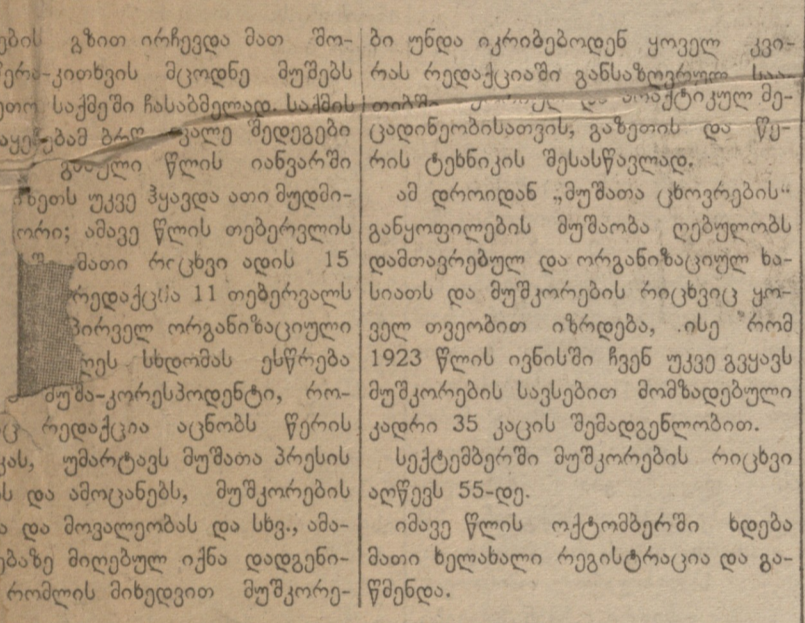 ების გზით ირჩევდა მათ შო-
წერა-კითხვის მცოდნე მუშებს
საქმეში ჩასაბმელად. საქმის
შედეგები
გასული წლის იანვარში
უკვე ჰყავდა ათი მუდმი-
ორი; ამავე წლის თებერვლის
მათი რიცხვი ადის 15
რედაქცია 11 თებერვალს
პირველ ორგანიზაციული
სხდომას ესწრება
მუშა-კორესპოდენტი, რო-
ც რედაქცია აცნობს წერის
კას, უმარტავს მუშათა პრესის
ს და ამოცანებს, მუშკორების
ა და მოვალეობას და სხვ., ამა-
ებაზე მიღებულ იქნა დადგენი-
რომლის მიხედვით მუშკორე-
ბი უნდა იკრიბებოდენ ყოველ კვი-
რას რედაქციაში განსაზღვრულ საა-
და პრაქტიკულ მე-
ცადინეობისათვის, გაზეთის და წე-
რის ტეხნიკის შესასწავლად.
ამ დროიდან „მუშათა ცხოვრების“
განყოფილების მუშაობა ღებულობს
დამთავრებულ და ორგანიზაციულ ხა-
სიათს და მუშკორების რიცხვიც ყო-
ველ თვეობით იზრდება, ისე რომ
1923 წლის ივნისში ჩვენ უკვე გვყავს
მუშკორების სავსებით მომზადებული
კადრი 35 კაცის შემადგენლობით.
სექტემბერში მუშკორების რიცხვი
აღწევს 55-დე.
იმავე წლის ოქტომბერში ხდება
მათი ხელახალი რეგისტრაცია და გა-
წმენდა.